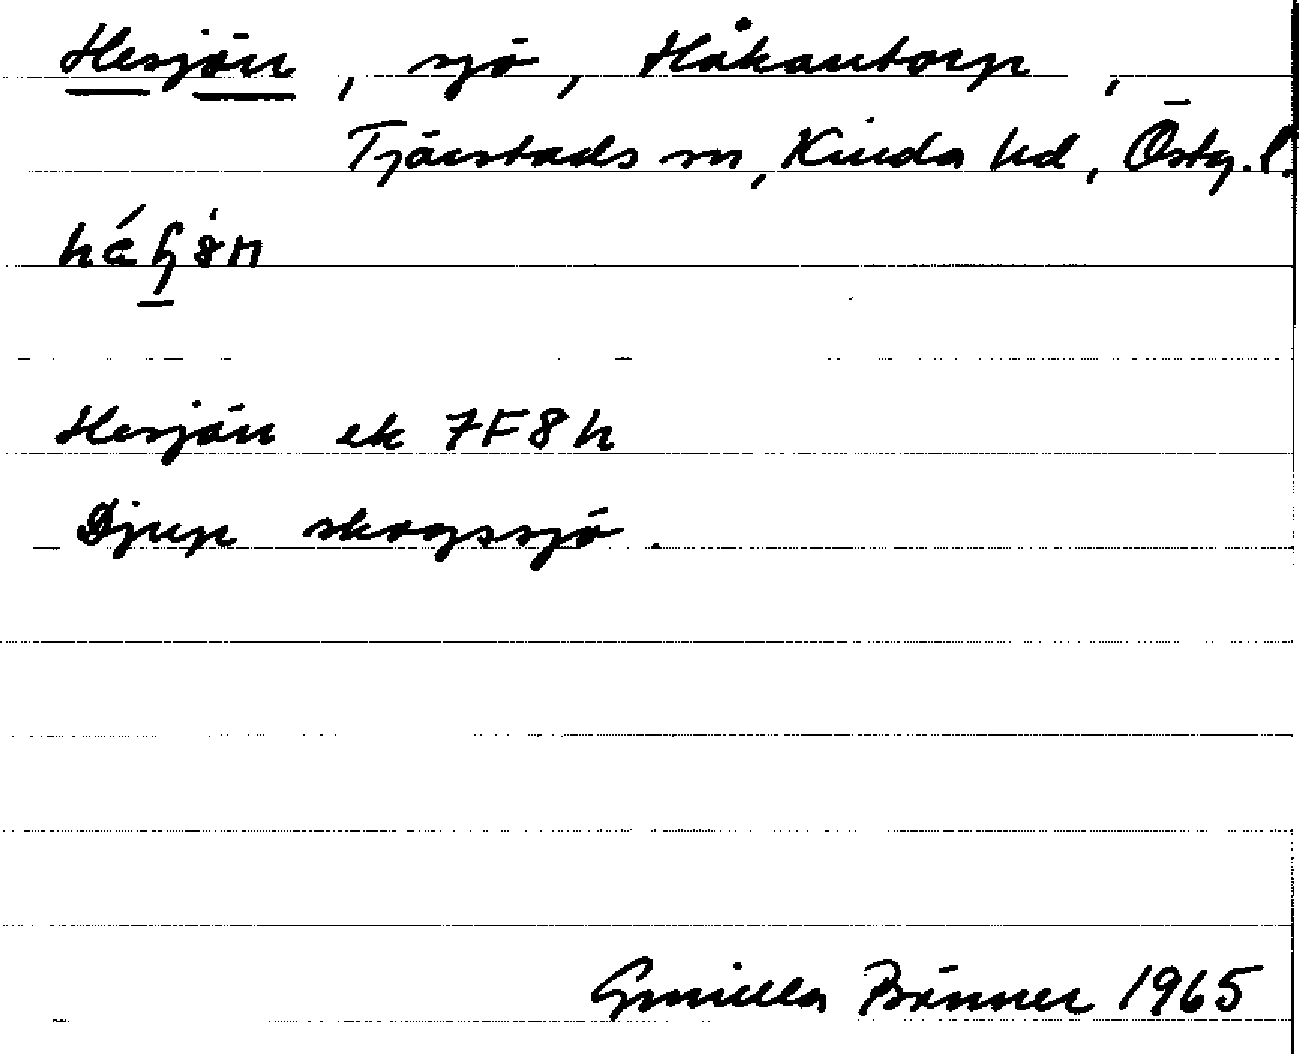 Hesjön, sjö, Håkantorp,
Tjärstads sn, Kinda hd, Östg.l.
Hesjön ek 7F8h
Djup skogssjö.
Gunilla Bonner 1965